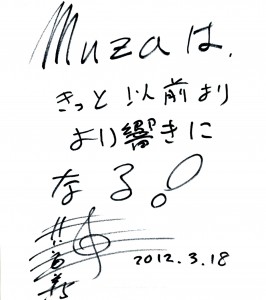 Muzaは、
きっと以前より
より響きに
なる!
2012.3.18